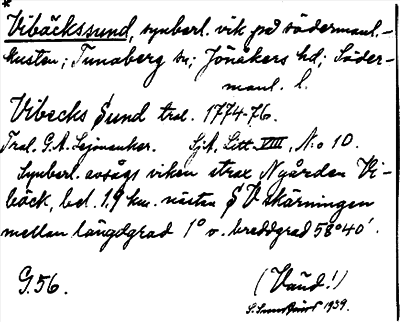 *
Vibäckssund, synberl. vik på södermanl.-
kusten; Tunaberg sn; Jönåkers hd; Söder-
manl. l.
Vibecks Sund tral. 1774-76.
Tral. G. A. Lejonanker. Sjk. Litt. VIII, N:o 10.
Synberl. avsågs viken strax N gården Vi-
bäck, bel. 1.9 km. nästan S V skärningen
mellan längdgrad 1° v. breddgrad 58°40'.
G. 56. (Vaud!)
1939.